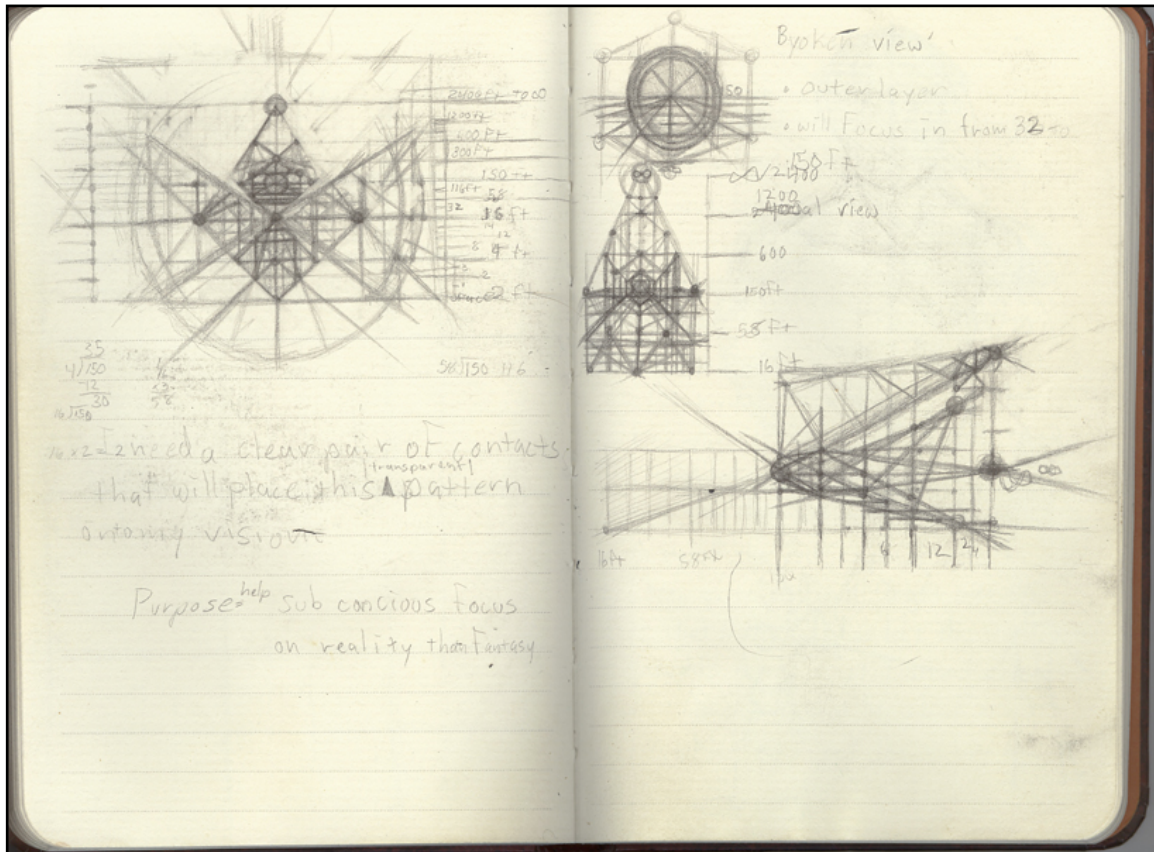 1200ft
600Ft
300Ft
150 ft
116ft 58
32 16 ft
12
8 4 ft
2
Space 2 ft
25
4)150
12
30
58
58)150 116
16)150
16 x 2 = I need a clear pair of contacts
|transparent|
that will place this pattern
onto my vision
Purpose = help sub concious Focus
on reality than Fantasy
Byoken view
• outer layer
• will Focus in from 32 to
150 Ft
50
∞ / 2400
1200
2400 al view
600
150ft
58 Ft
16 ft
16ft
58ft
8
12
24